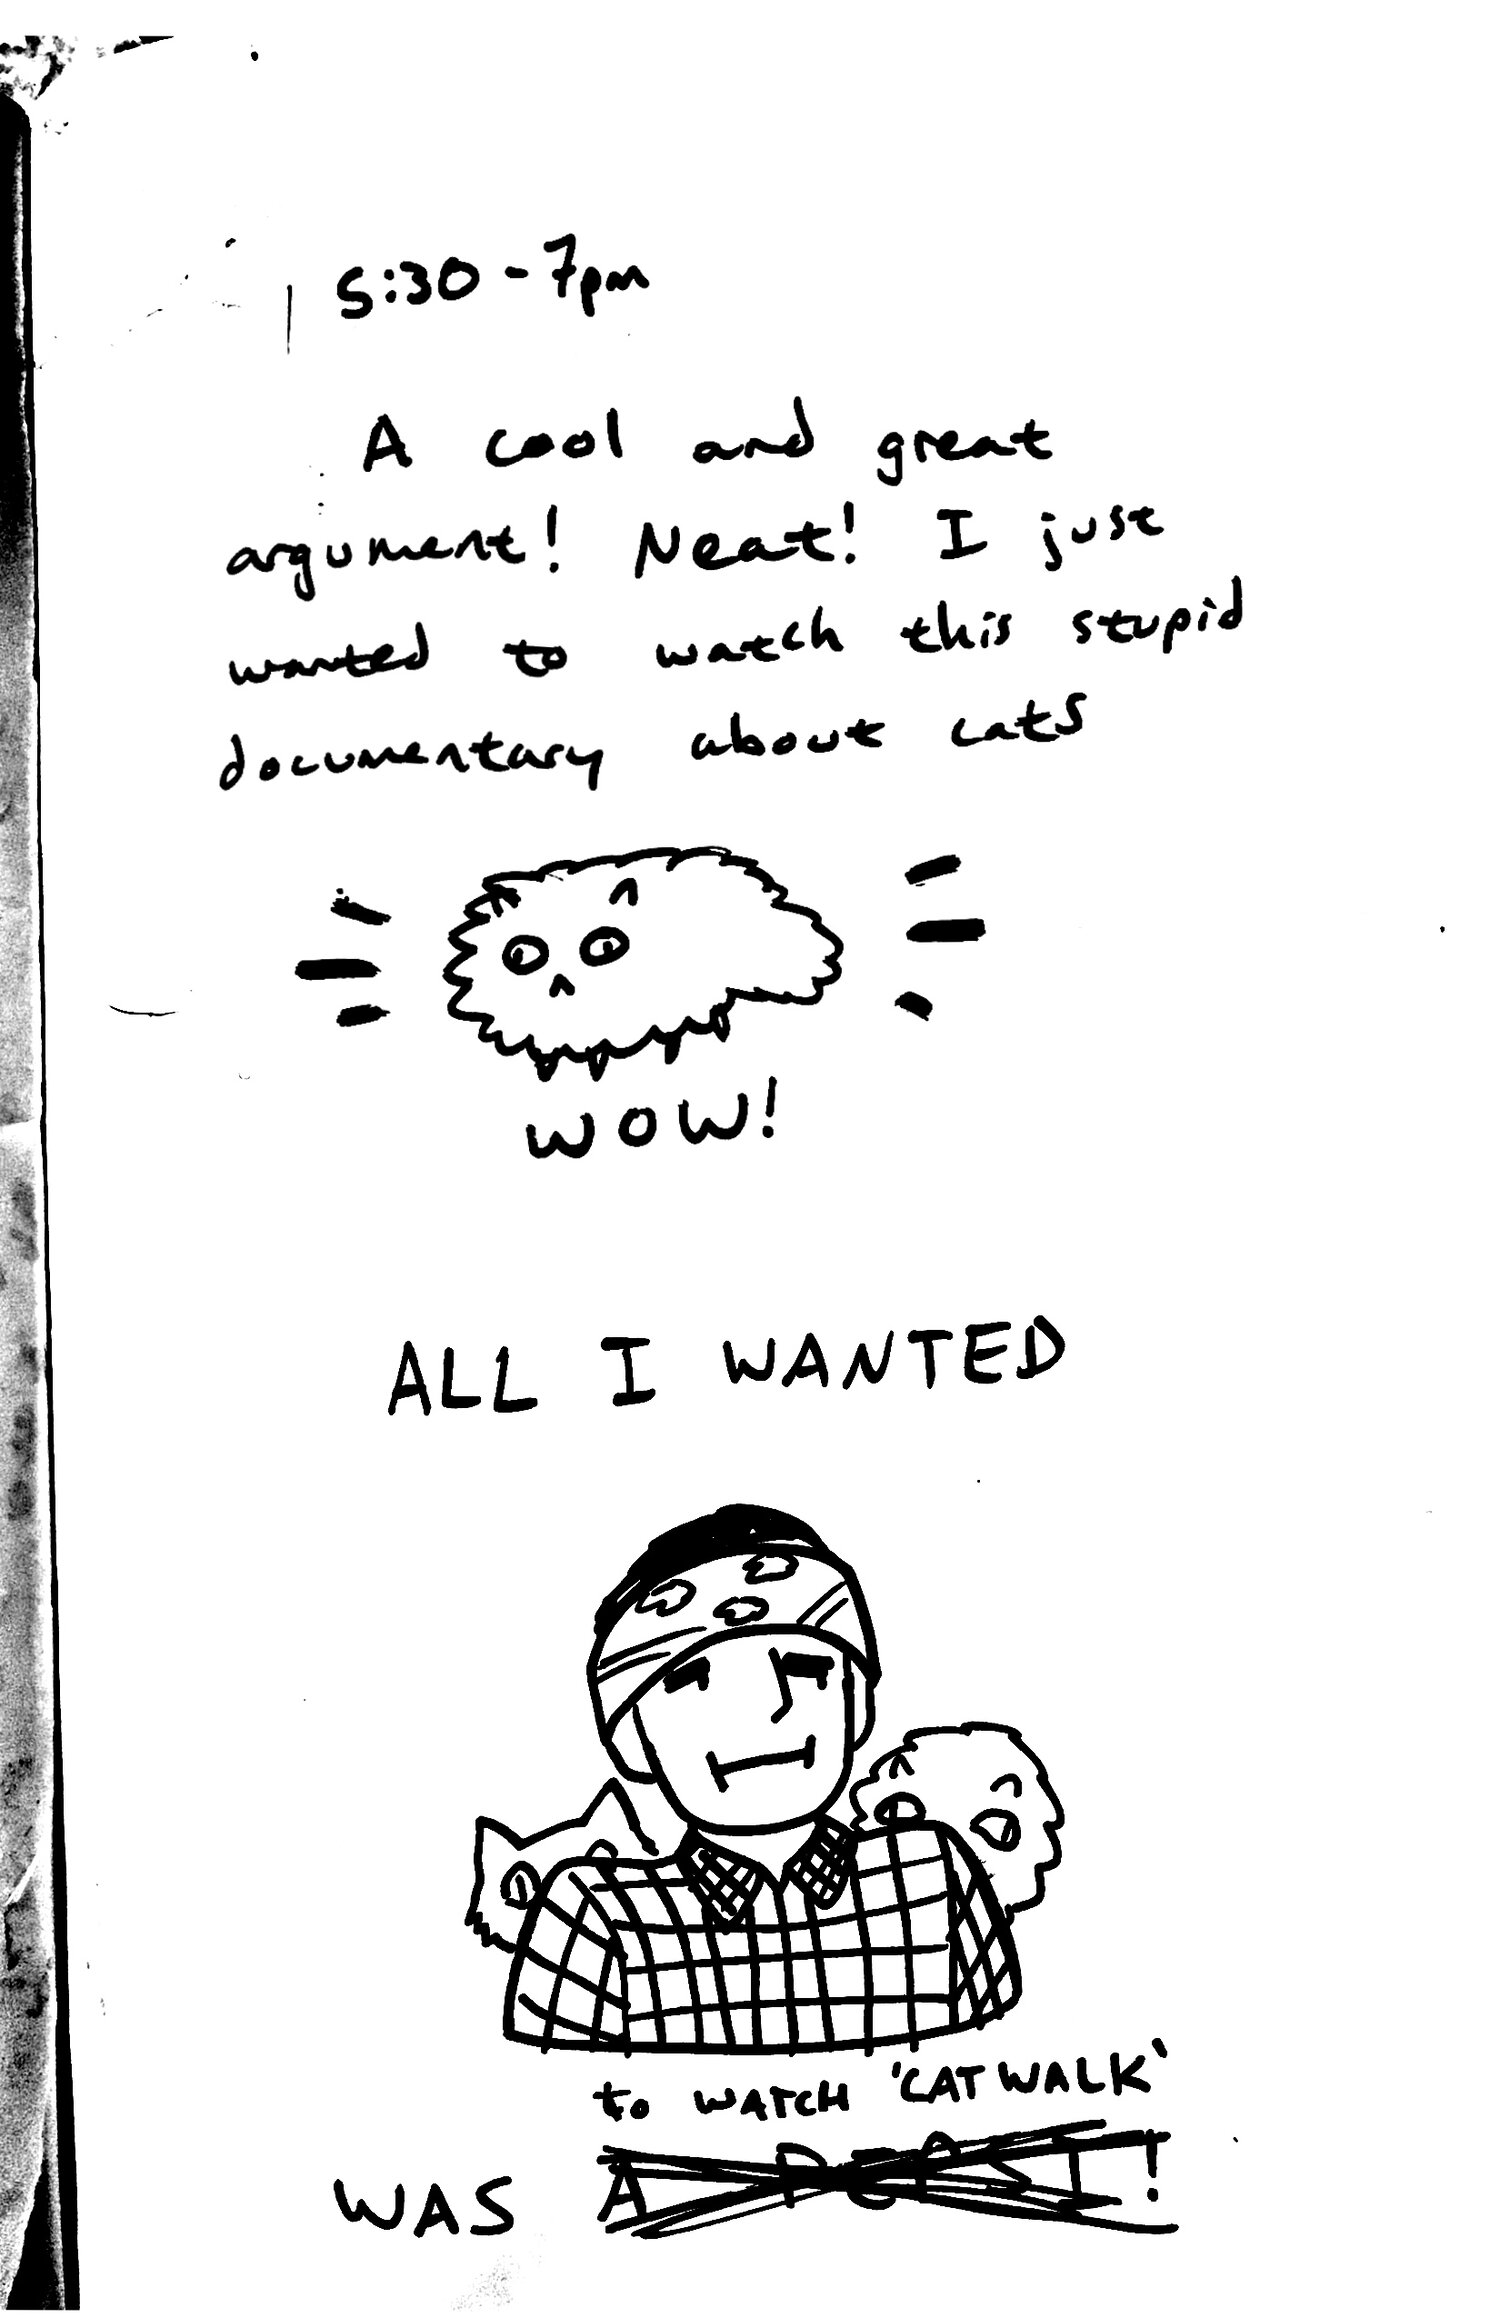 5:30 - 7pm
A cool and great
argument! Neat! I just
wanted to watch this stupid
documentary about cats
WOW!
ALL I WANTED
to WATCH 'CATWALK'
WAS A PEPSI!